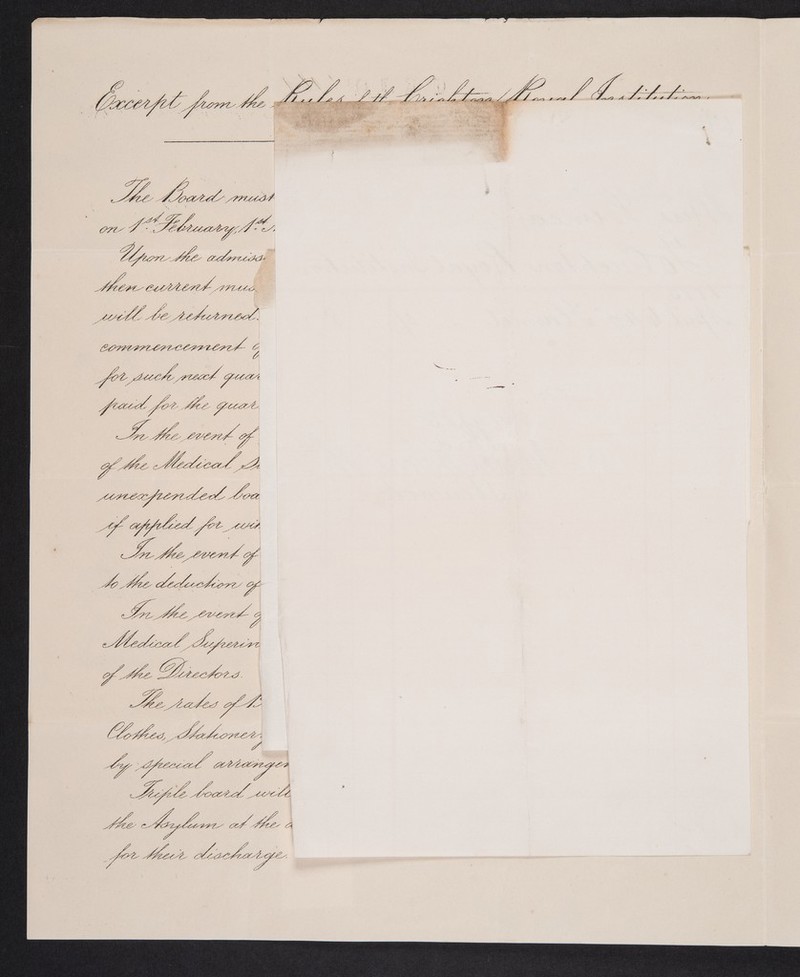 Excerpt from the Rules of the Crichton Royal Institution.
The Board must
on 1st February, 1st
Upon the admiss
then current mus
will be returned
commencement of
for such next quar
paid for the quar
In the event of
of the Medical Su
unexpended boa
if applied for wit
In the event of
to the deduction of
In the event of
Medical Superin
of the Directors.
The rates of B
Clothes, Stationery
by special arrangem
Triple board will
the Asylum at the
for their discharge.